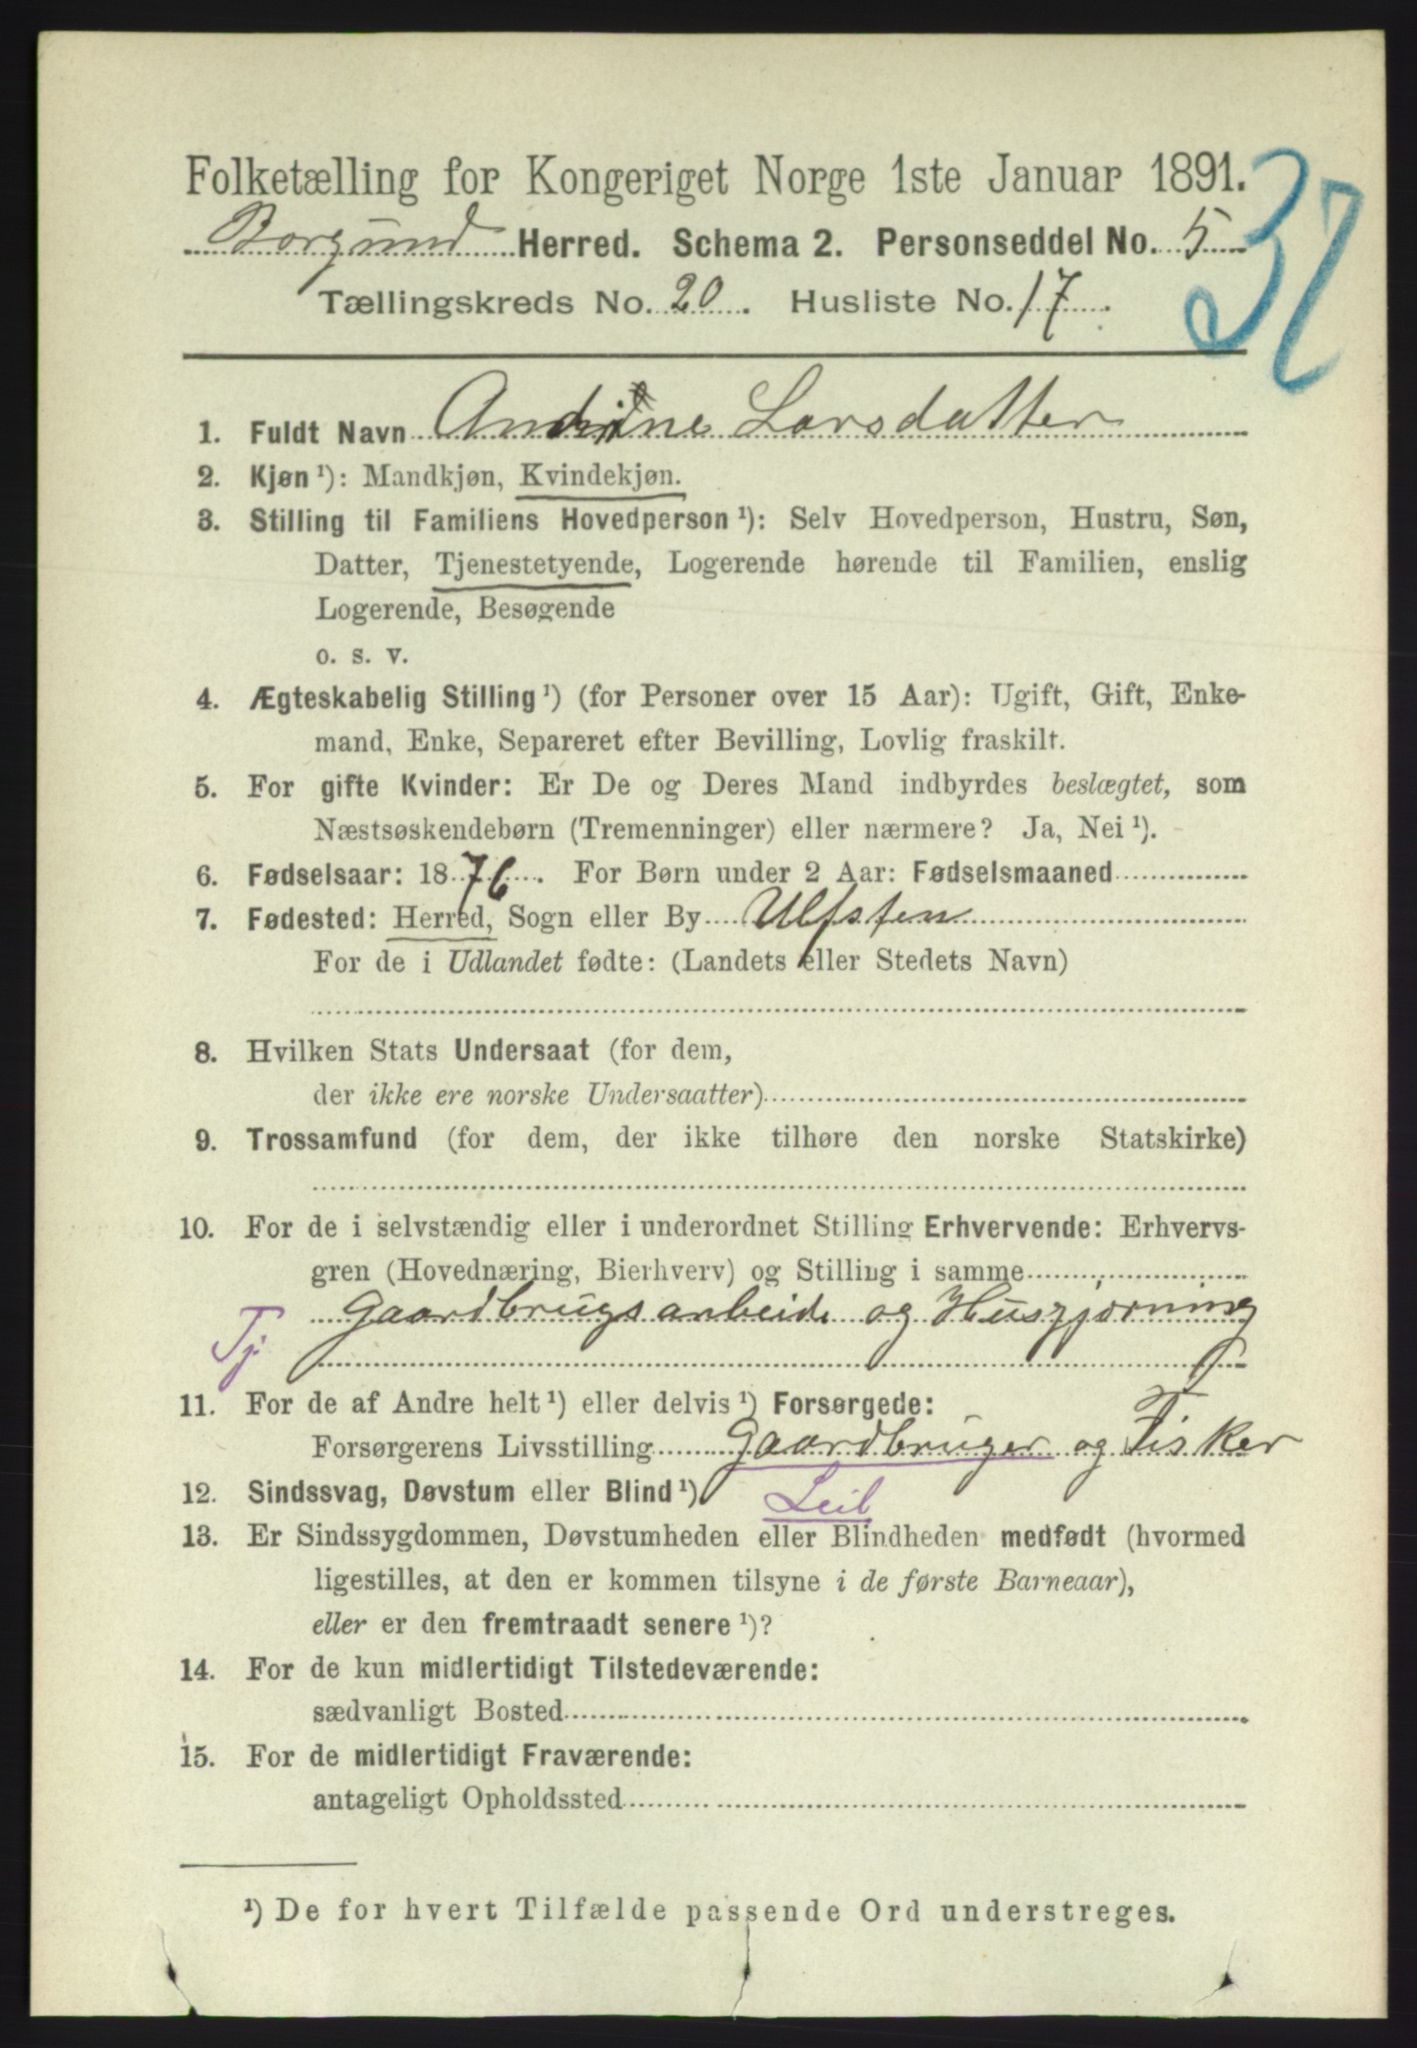 Folketælling for Kongeriget Norge 1ste Januar 1891.
32
Borgund Herred. Schema 2. Personseddel No. 5
Tællingskreds No. 20. Husliste No. 17.
1. Fuldt Navn Andrine Larsdatter
2. Kjøn ¹): Mandkjøn, Kvindekjøn.
3. Stilling til Familiens Hovedperson ¹): Selv Hovedperson, Hustru, Søn,
Datter, Tjenestetyende, Logerende hørende til Familien, enslig
Logerende, Besøgende
o. s. v.
4. Ægteskabelig Stilling ¹) (for Personer over 15 Aar): Ugift, Gift, Enke-
mand, Enke, Separeret efter Bevilling, Lovlig fraskilt.
5. For gifte Kvinder: Er De og Deres Mand indbyrdes beslægtet, som
Næstsøskendebørn (Tremenninger) eller nærmere? Ja, Nei ¹).
6. Fødselsaar: 1876. For Børn under 2 Aar: Fødselsmaaned
7. Fødested: Herred, Sogn eller By Ulfsten
For de i Udlandet fødte: (Landets eller Stedets Navn)
8. Hvilken Stats Undersaat (for dem,
der ikke ere norske Undersaatter)
9. Trossamfund (for dem, der ikke tilhøre den norske Statskirke)
10. For de i selvstændig eller i underordnet Stilling Erhvervende: Erhvervs-
gren (Hovednæring, Bierhverv) og Stilling i samme
Gaardbrugsarbeide og Husgjørning
Tj
11. For de af Andre helt ¹) eller delvis ¹) Forsørgede:
Forsørgerens Livsstilling Gaardbruger og Fisker
12. Sindssvag, Døvstum eller Blind ¹)
Leil
13. Er Sindssygdommen, Døvstumheden eller Blindheden medfødt (hvormed
ligestilles, at den er kommen tilsyne i de første Barneaar),
eller er den fremtraadt senere ¹)?
14. For de kun midlertidigt Tilstedeværende:
sædvanligt Bosted
15. For de midlertidigt Fraværende:
antageligt Opholdssted
¹) De for hvert Tilfælde passende Ord understreges.